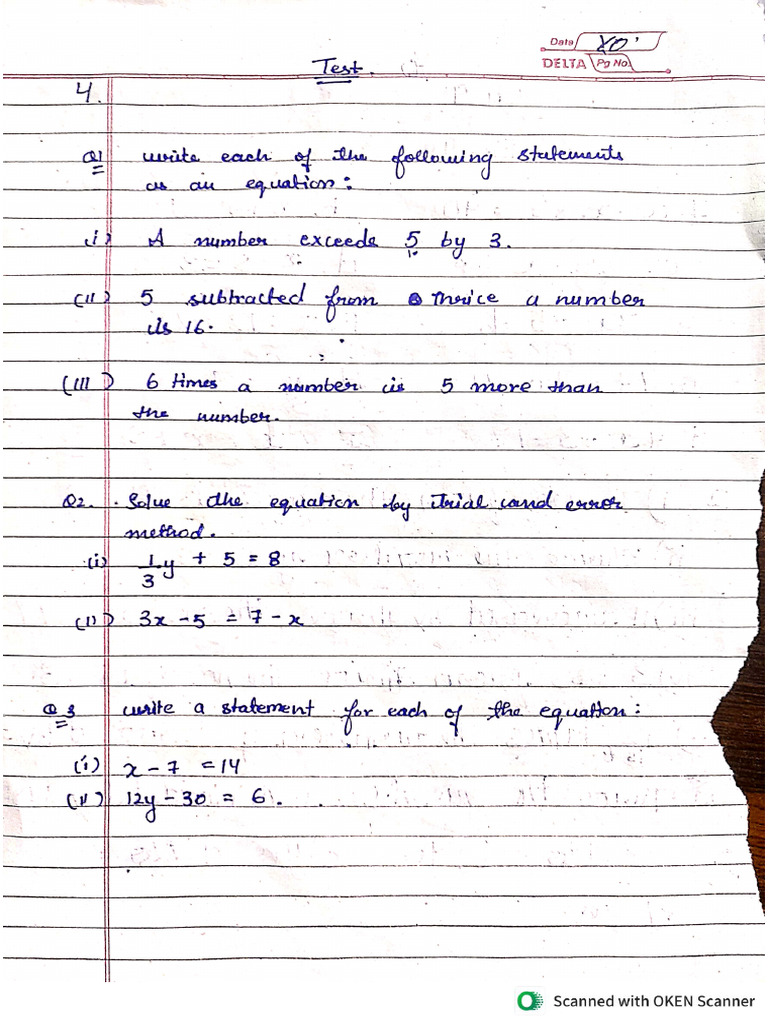 Date XO'
DELTA Pg No.
Test.
4.
Q1 write each of the following statements
as an equation:
(i) A number exceeds 5 by 3.
(II) 5 subtracted from thrice a number
is 16.
(III) 6 times a number is 5 more than
the number.
Q2. Solve the equation by trial and error
method.
(i) 1/3 y + 5 = 8
(I) 3x - 5 = 7 - x
Q3 write a statement for each of the equation:
(i) x - 7 = 14
(II) 12y - 30 = 6.
Scanned with OKEN Scanner